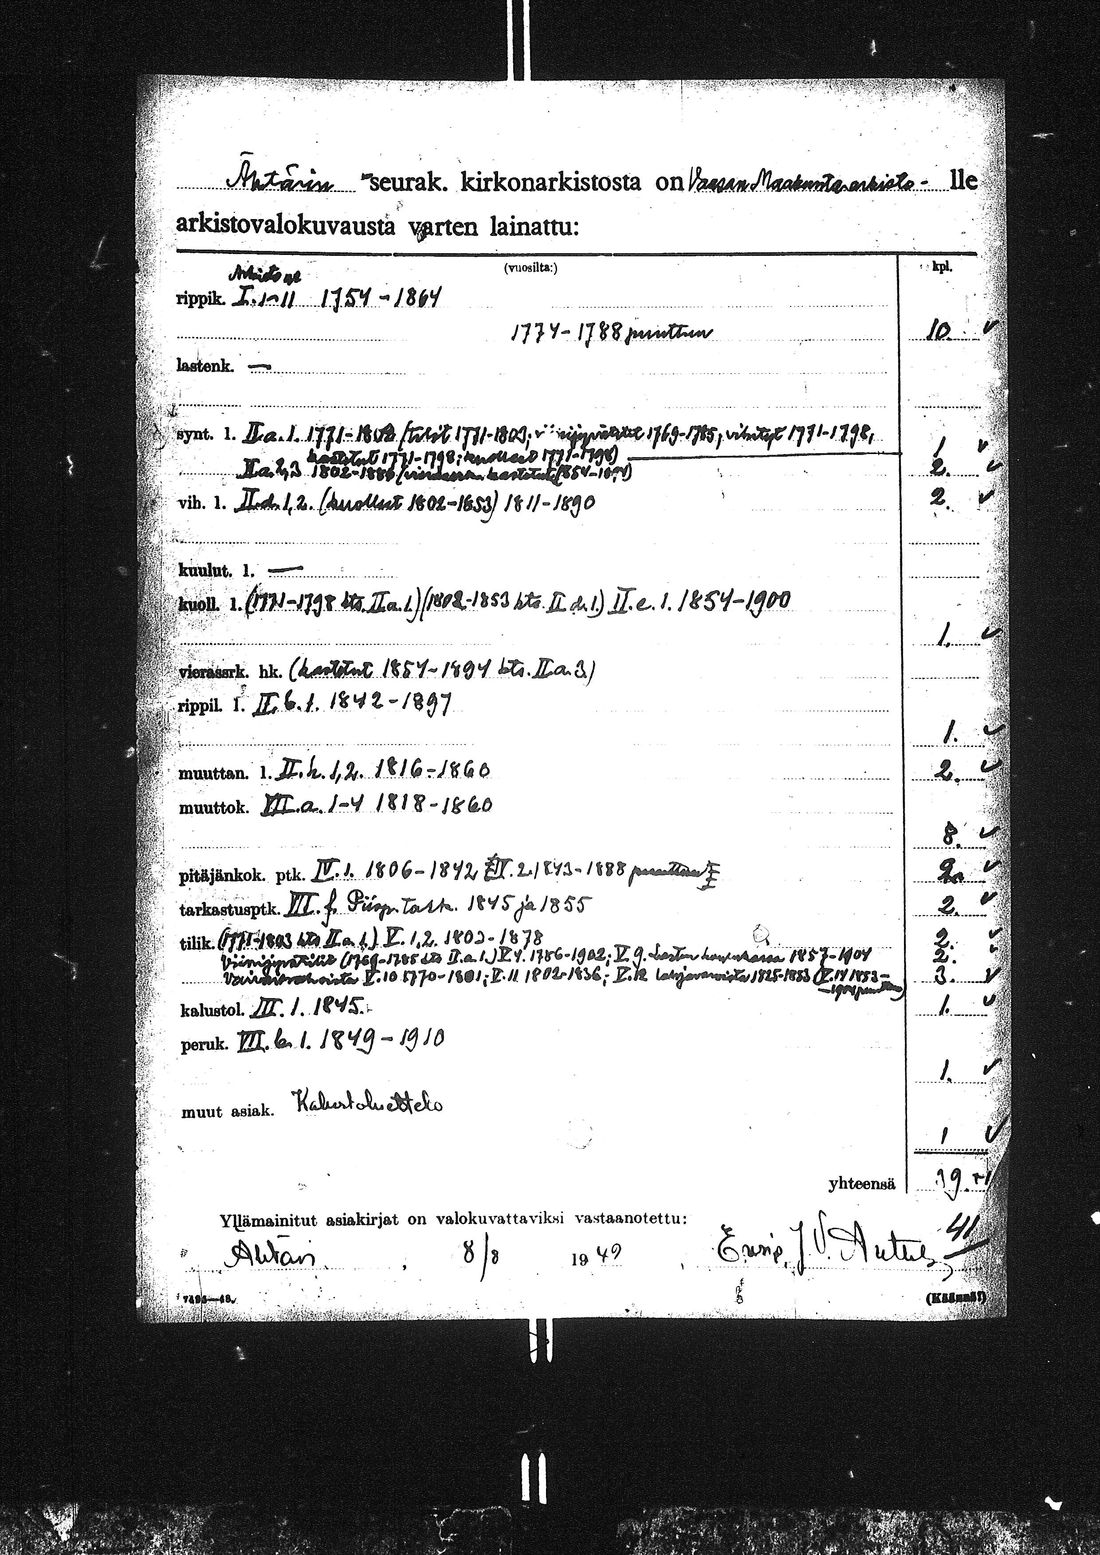 Ähtärin seurak. kirkonarkistosta on Vaasan Maakunta-arkisto - lle
arkistovalokuvausta varten lainattu:
(vuosilta:) kpl.
rippik. I. 1-11 1754-1864
1774-1788 puuttuu 10.
lastenk. —
synt. l. II.a.1. 1771-1802 (tilit 1771-1803; 1769-1785, vihityt 1771-1798,
kastetut 1771-1798; kuolleet 1771-1798) 1
II.a.2,3 1802-1886 2.
vih. l. II.d.1,2. (kuolleet 1802-1853) 1811-1890 2.
kuulut. l. —
kuoll. l. (1771-1798 kts. II.a.1.) (1802-1853 kts. II.d.1.) II.e.1. 1854-1900
1.
vierassrk. hk. (kastetut 1854-1894 kts. II.a.3)
rippil. l. II.b.1. 1842-1897
1.
muuttan. l. II.h.1,2. 1816-1860 2.
muuttok. VII.a. 1-4 1818-1860
8.
pitäjänkok. ptk. IV.1. 1806-1842 2. 1843-1888 puuttuu 2.
tarkastusptk. III.f. Piisp. tark. 1845 ja 1855 2.
tilik. (1771-1803 kts II.a.1.) V.1,2. 1803-1878 2.
(1769-1785 kts II.a.1.) V.4. 1786-1902; V.9. lasten 1857-1904 2.
V.10 1770-1801; V.11 1802-1836; V.12 1825-1853 (V.14 1853- 3.
puuttuu)
kalustol. III.1. 1845. 1.
peruk. VII.b.1. 1849-1910
1.
muut asiak. Kalustoluettelo
1
yhteensä 39.
41
Yllämainitut asiakirjat on valokuvattaviksi vastaanotettu:
Ähtäri, 8/8 1949, J.V.
(Käännä!)